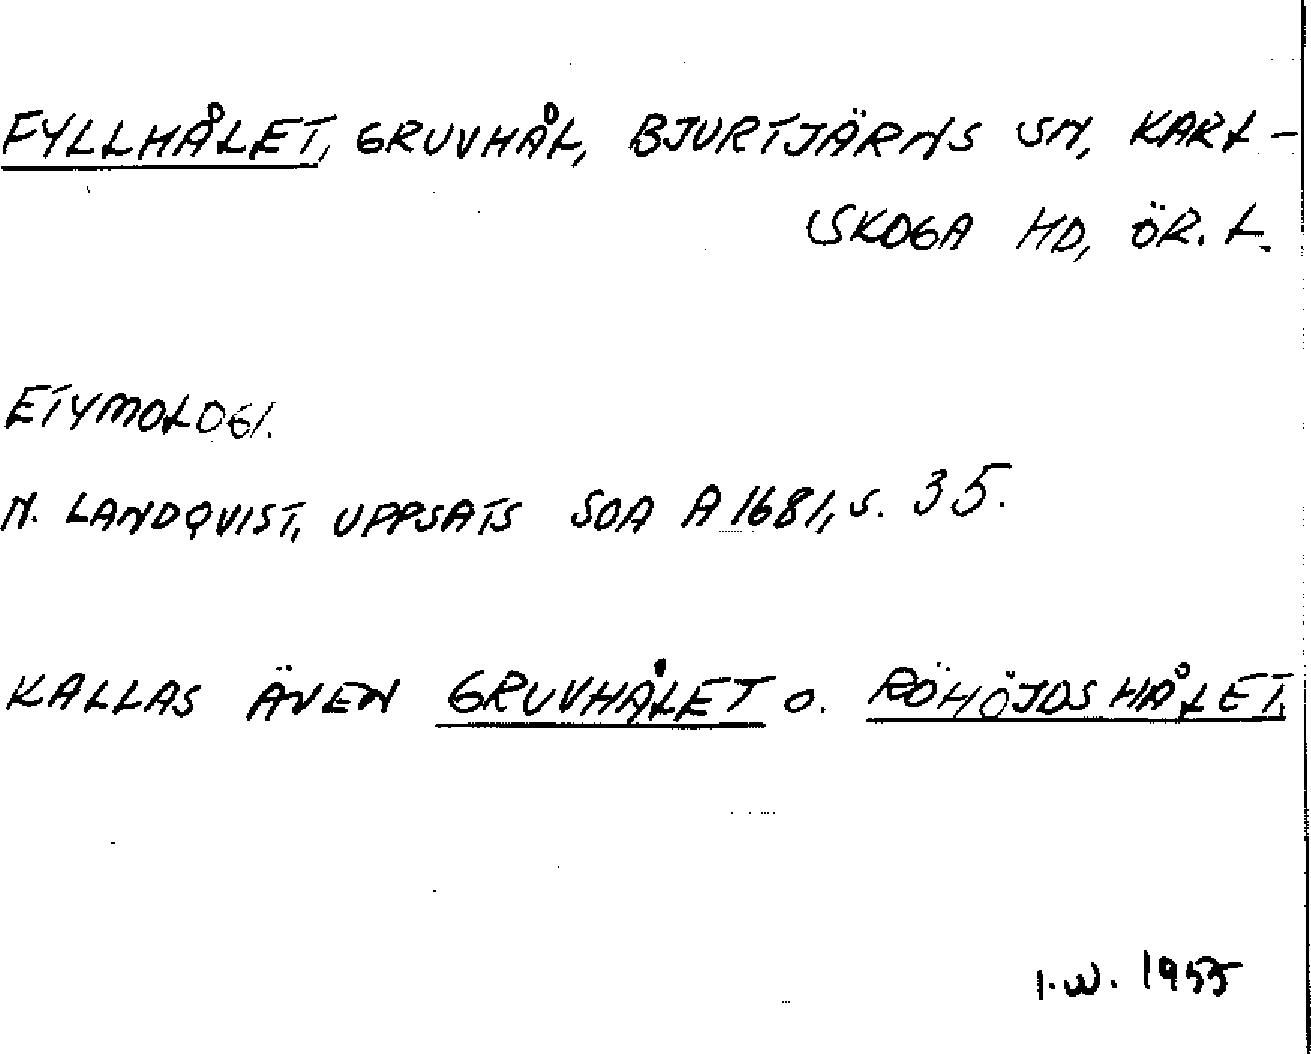 FYLLHÅLET, GRUVHÅL, BJURTJÄRNS SN, KARL-
SKOGA HD, ÖR. L.
ETYMOLOGI.
N. LANDQVIST, UPPSATS SOA A 1681, S. 35.
KALLAS ÄVEN GRUVHÅLET O. RÖHÖJDSHÅLET.
I.W. 1955